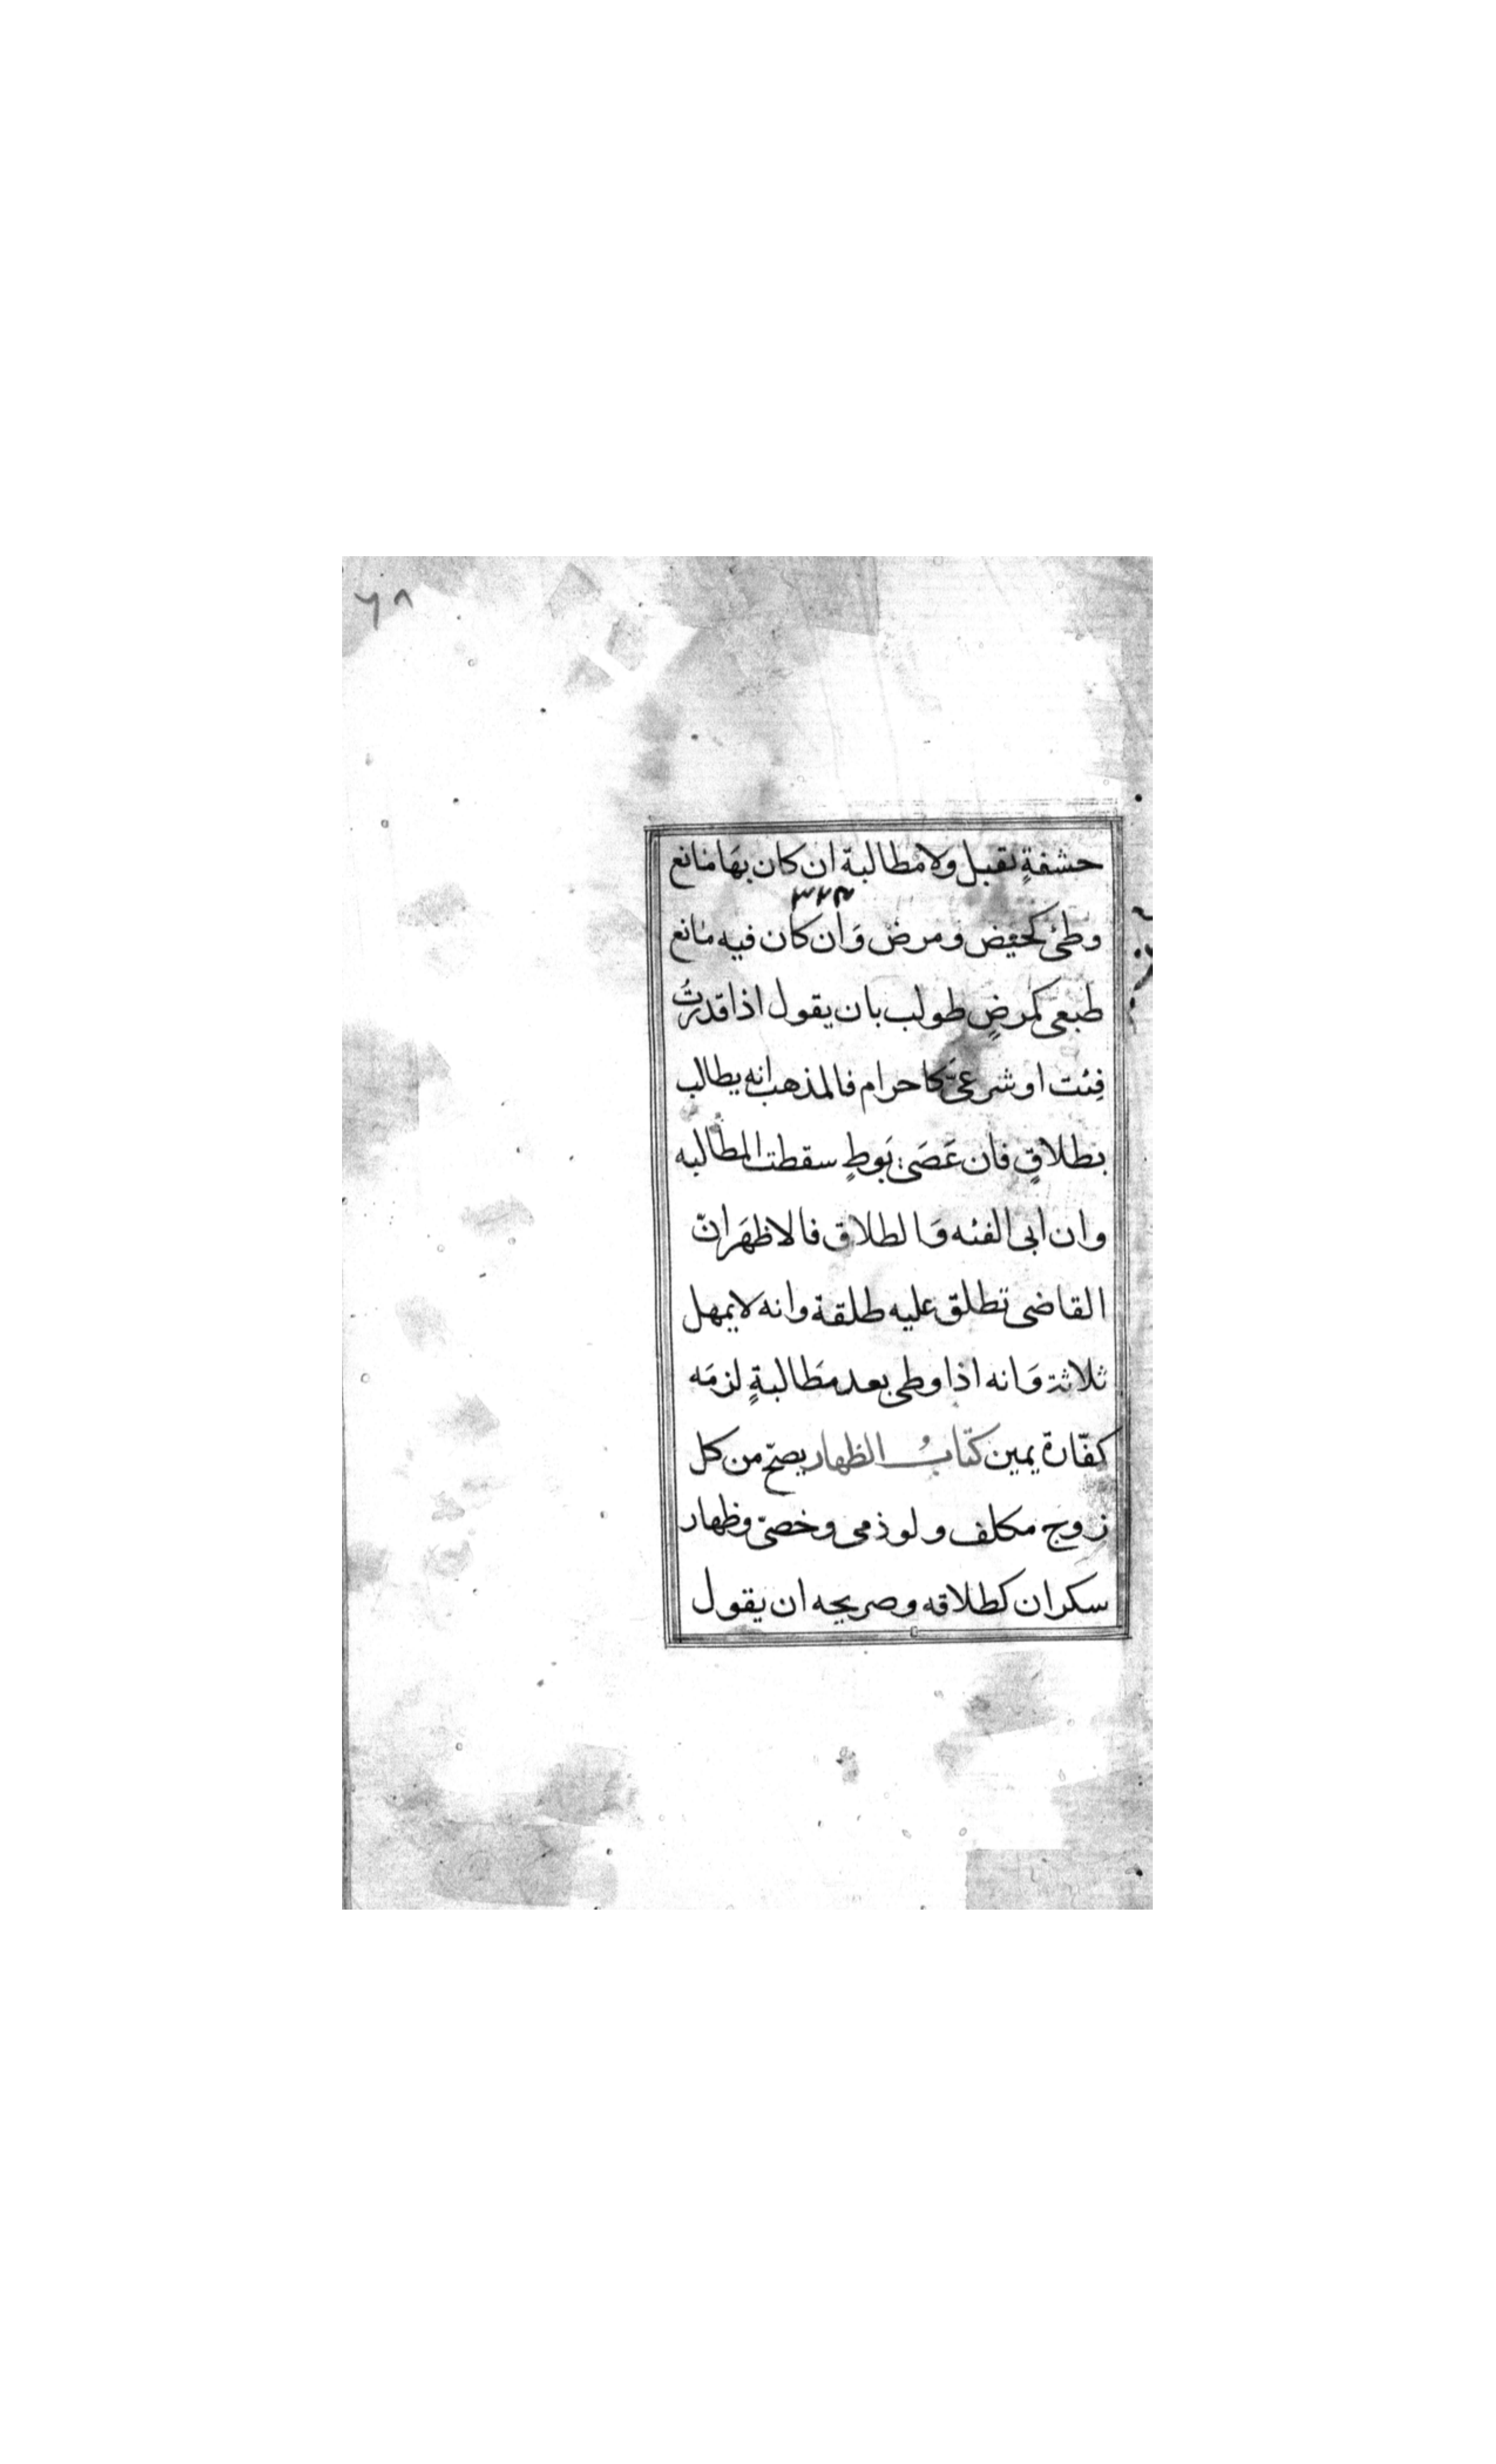 ٦٨
حشفةٍ تقبل ولا مطالبة ان كان بهَا مَانع
وطئ كحيض ومرض وَان كان فيه مَانع
طبعى كمرضٍ طولب بان يقول اذا قدرتُ
فِئت او شرعىّ كاحرام فالمذهب انه يطالب
بطلاقٍ فان عَصَى بوَطٍ سقطت المطالبه
وان ابى الفئه وَالطلاق فالاظهَر انّ
القاضى تطلق عليه طلقة وانه لا يمهل
ثلاثة وَانه اذا وطى بعد مطَالبةٍ لزمَه
كفّارة يمين كتَابُ الظهار يصحّ من كل
زوج مكلف ولو ذمى وخصىّ وظهار
سكران كطلاقه وصريحه ان يقول